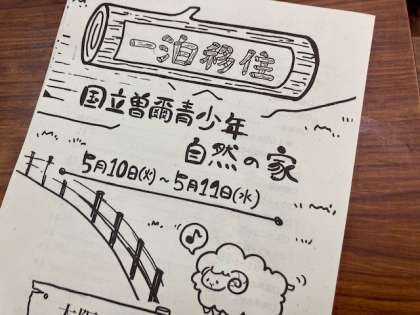 一泊移住
国立曽爾青少年
自然の家
5月10日(火)~5月11日(水)